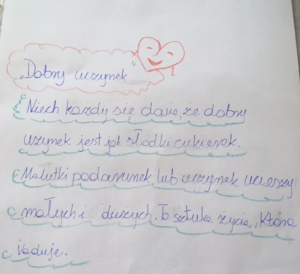 "Dobry uczynek"
Niech każdy się dowie, że dobry
uczynek jest jak słodki cukierek.
Malutki podarunek lub uczynek ucieszy
małych i dużych. To sztuka życia, która
raduje.